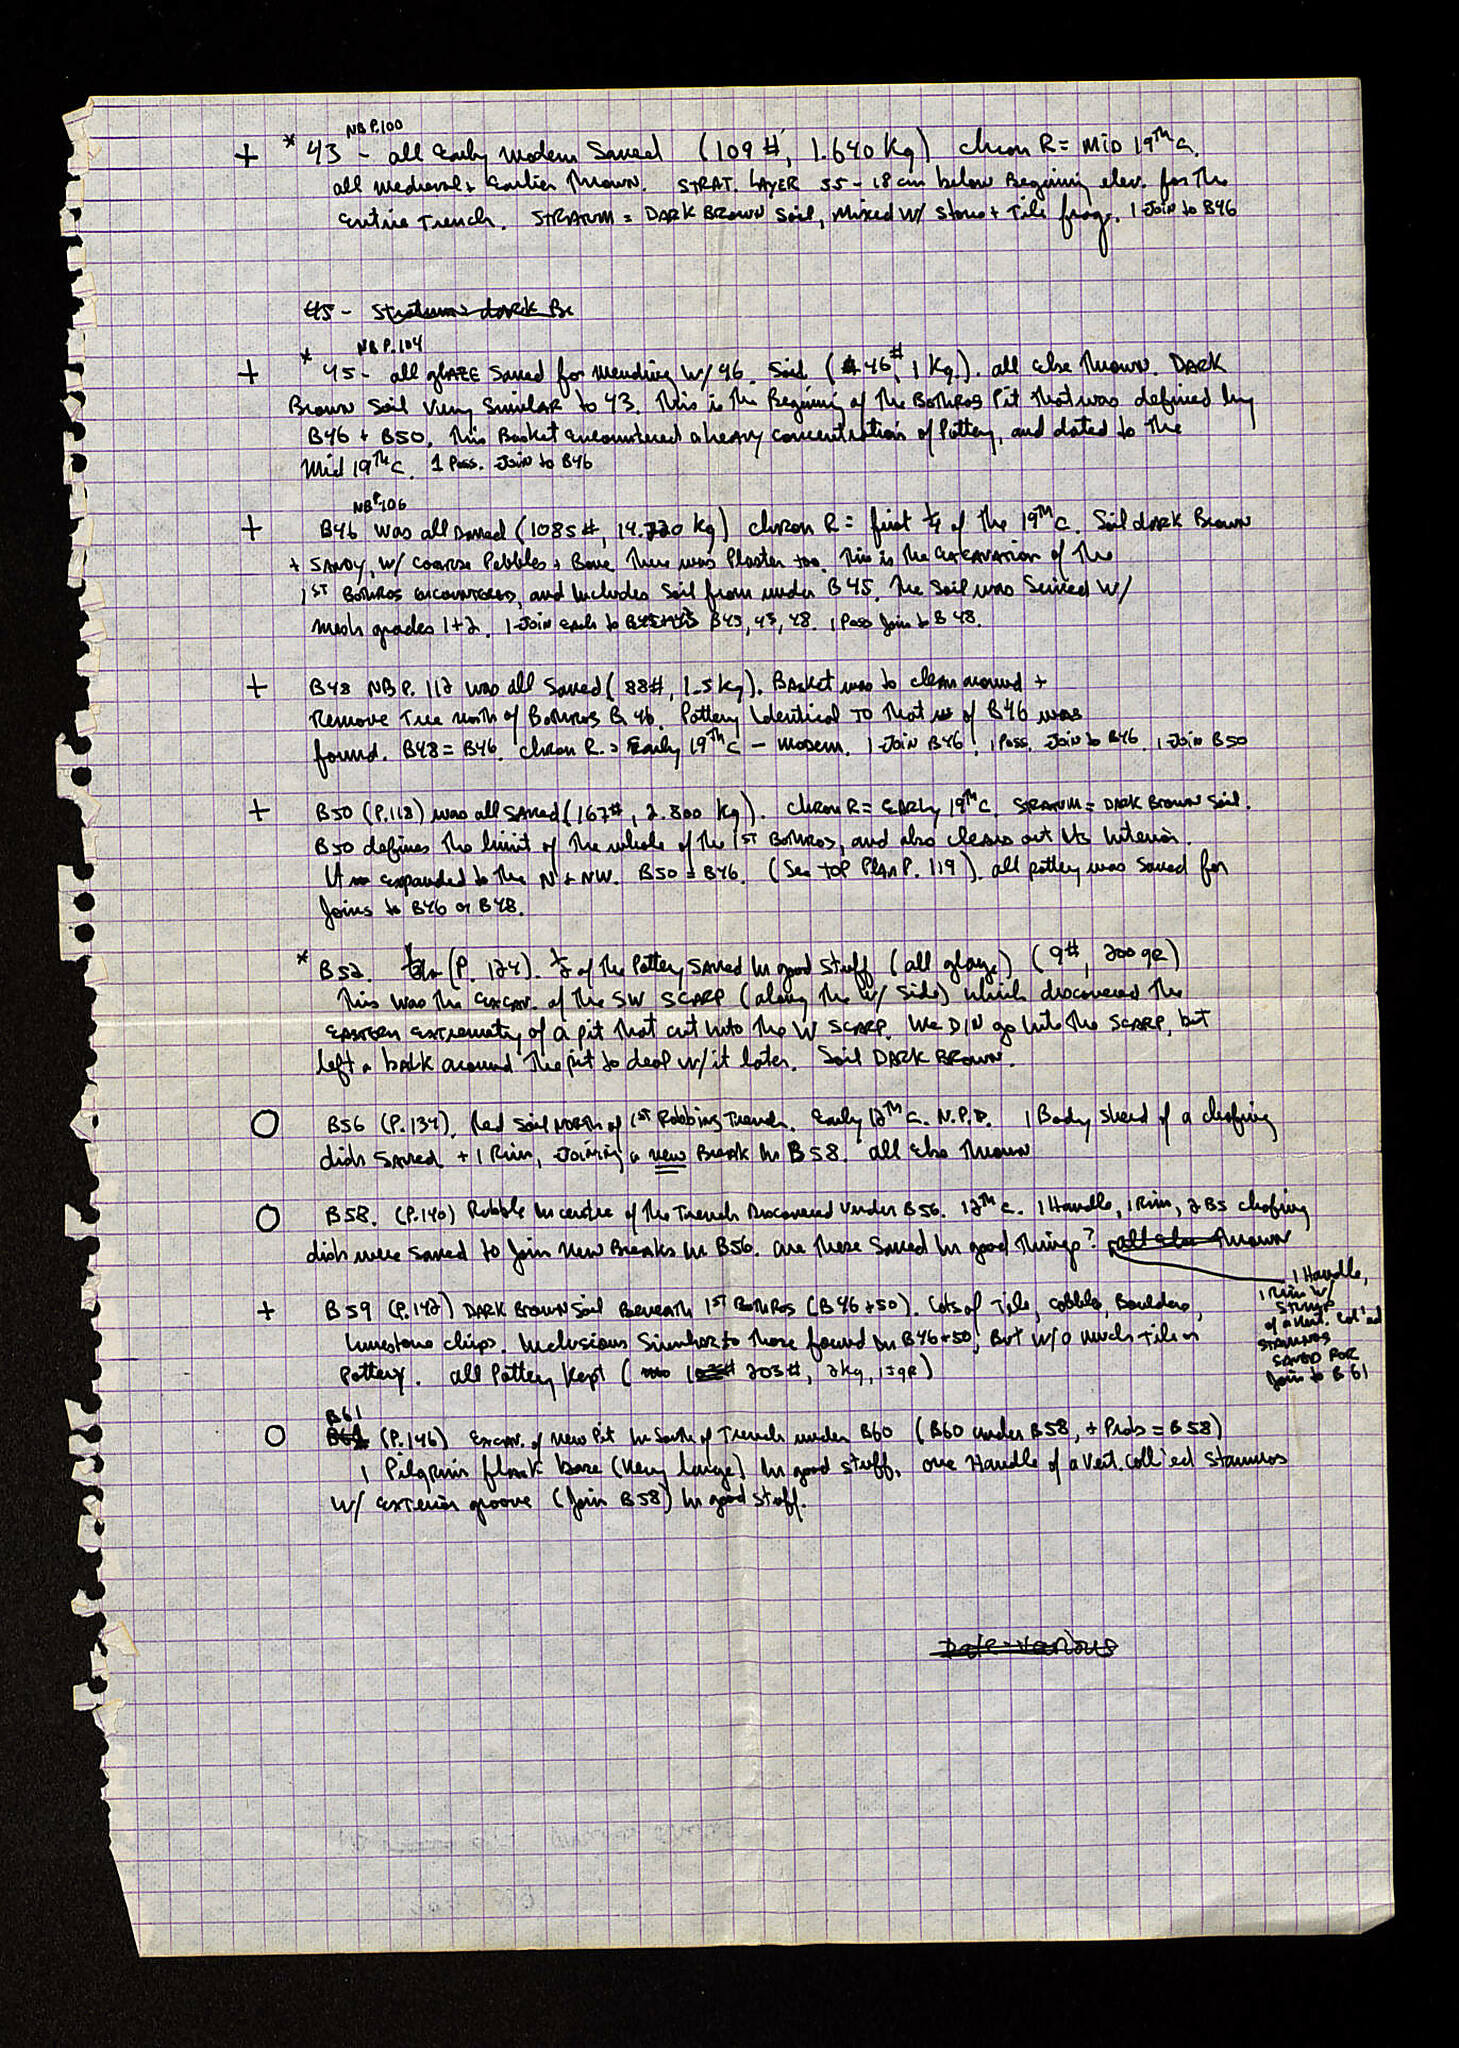 NB P.100
+ * 43 - all Early Modern Saved (109 #, 1.640 Kg) chron R = MiD 19TH c.
all medieval + Earlier Thrown. STRAT. LAYER 55-18 cm below Beginning elev. for The
Entire Trench. STRATUM = DARK BROWN Soil, Mixed w/ stones + Tile frags. 1 Join to B46
45 - Stratum = dark Br
NB P.104
+ * 45 - all glaze saved for mending w/ 46. Soil (46#, 1 Kg.). all else Thrown. DARK
Brown Soil Very Similar to 43. This is The Beginning of The Bothros Pit That was defined by
B46 + B50. This Basket encountered a heavy concentration of Pottery, and dated to The
Mid 19TH c. 1 Poss. Join to B46
NB P.106
+ B46 was all saved (1085 #, 14.220 Kg) chron R = first 1/4 of The 19TH c. Soil dark Brown
+ SANDY, w/ coarse Pebbles + Bone There was Plaster too. This is The EXCAVATION of The
1ST Bothros encountered, and includes Soil from under B45. The Soil was Seived w/
mesh grades 1+2. 1 Join each to B45, 43, 48. 1 Poss Join to B48.
+ B48 NB P. 112 was all saved (88#, 1.5 kg). Basket was to clean around +
Remove Tree north of Bothros B46. Pottery Identical TO That of B46 was
found. B48 = B46. chron R. = Early 19TH c - modern. 1 Join B46. 1 Poss. Join to B46. 1 Join B50
+ B50 (P.118) was all saved (167#, 2.800 kg). chron R = EARly 19TH c. STRATUM = DARK Brown Soil.
B50 defines The limit of The whole of The 1ST Bothros, and also clears out its Interior.
It expanded to The N + NW. B50 = B46. (See TOP Plan P. 119). all pottery was saved for
Joins to B46 or B48.
* B52. (P. 124). 1/2 of The Pottery saved In good Stuff (all glaze) (9#, 200 gr)
This was The excav. of The SW SCARP (along The W side) which discovered The
EASTERN EXTREMITY of a pit That cut into The W SCARP. We DIN go into The SCARP, but
left a balk around The pit to deal w/ it later. Soil DARK BROWN.
O B56 (P.134). Red Soil North of 1ST Robbing Trench. Early 12TH c. N.P.D. 1 Body sherd of a chafing
dish Saved + 1 Rim, Joining a new Break In B58. all else Thrown
O B58. (P.140) Rubble In centre of The Trench Discovered Under B56. 12TH c. 1 Handle, 1 Rim, 2 BS chafing
dish were saved to Join New Breaks In B56. are These Saved In good Things? all else Thrown
1 Handle,
1 Rim w/
STRAP
of a Vert. Col'ed
STAMNOS
SAVED FOR
Join to B61
+ B59 (P.142) DARK BROWN Soil Beneath 1ST Bothros (B46+50). Lots of Tile, cobbles, Boulders,
limestone chips. Inclusions Similar to Those found In B46+50, But w/o much Tile or
Pottery. all Pottery Kept (203#, 2kg, 15gr)
B61
O (P.146) Excav. of New Pit In South of Trench under B60 (B60 under B58, + Prob = B58)
1 Pilgrim flask base (Very large) In good stuff. one Handle of a Vert. Coll'ed Stamnos
w/ exterior groove (Join B58) In good stuff.
Date - various